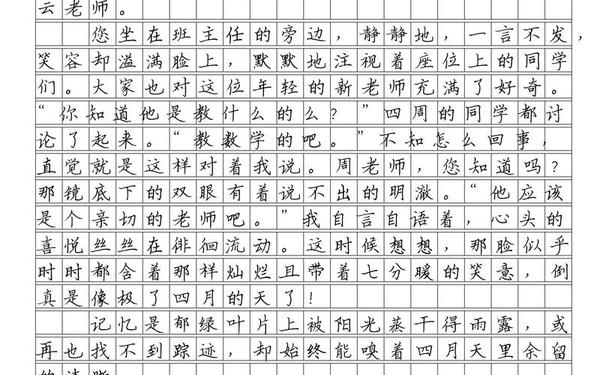 云老师。
您坐在班主任的旁边，静静地，一言不发，
笑容却溢满脸上，默默地注视着座位上的同学
们。大家也对这位年轻的新老师充满了好奇。
“你知道他是教什么的么？”四周的同学都讨
论了起来。“教数学的吧。”不知怎么回事，
直觉就是这样对着我说。周老师，您知道吗？
那镜底下的双眼有着说不出的明澈。“他应该
是个亲切的老师吧。”我自言自语着，心头的
喜悦丝丝在徘徊流动。这时候想想，那脸似乎
时时都含着那样灿烂且带着七分暖的笑意，倒
真是像极了四月的天了！
记忆是郁绿叶片上被阳光蒸干得雨露，或
再也找不到踪迹，却始终能嗅着四月天里余留
的清晰